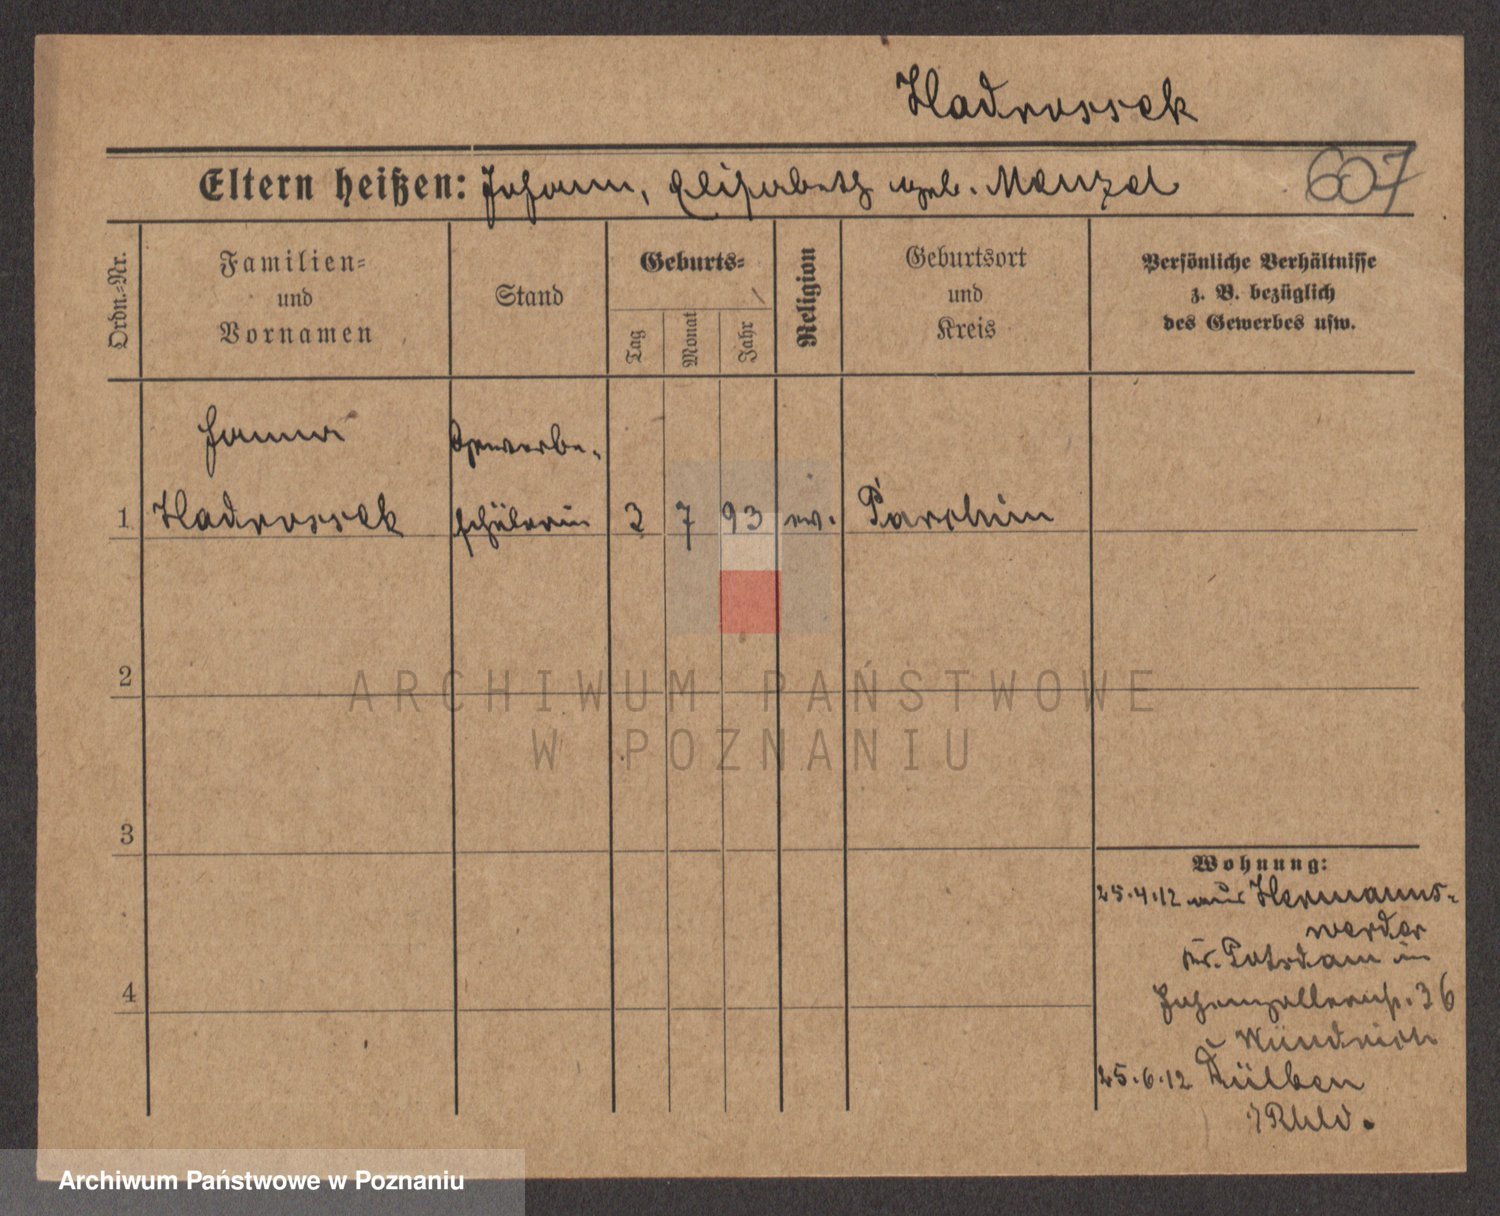 Hadrossek
Eltern heißen: Johann, Elisabeth geb. Menzel
607
Ordn.-Nr.
Familien-
und
Vornamen
Stand
Geburts-
Tag
Monat
Jahr
Religion
Geburtsort
und
Kreis
Persönliche Verhältnisse
z. B. bezüglich
des Gewerbes usw.
Gewerbe-
1 Hadrossek schülerin 2 7 93 ev. Parchim
2
3
4
Wohnung:
25.4.12 aus Hermanns-
werder
Kr. Potsdam in
Hohenzollernstr. 36
25.6.12 Dülken
Rhld.
ARCHIWUM PAŃSTWOWE
W POZNANIU
Archiwum Państwowe w Poznaniu